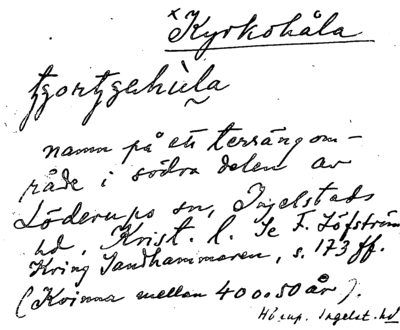 x Kyrkohåla
tʒortʒehu̇la
namn på ett terrängom-
råde i södra delen av
Löderups sn, Ingelstads
hd, Krist. l. Se F. Löfström
Kring Sandhammaren, s. 173 ff.
(Kvinna mellan 40 o. 50 år).
Hörup. Ingelst. hd